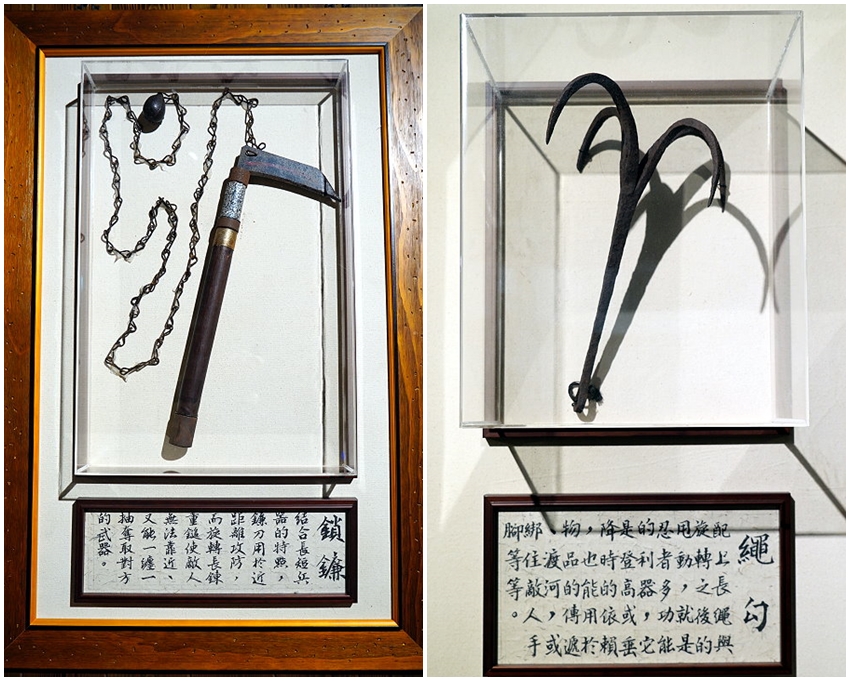 鎖鐮
結合長短兵
器的特點，
鐮刀用於近
距離攻防，
而旋轉長鍊
重鎚使敵人
無法靠近、
又能一纏一
抽奪取對方
的武器。
繩勾
配上長繩與
旋轉之後的
甩動，就是
忍者多功能
的利器，它
是登高或垂
降時的依賴
，也能用於
物品的傳遞
、渡河，或
綁住敵人手
腳等等。